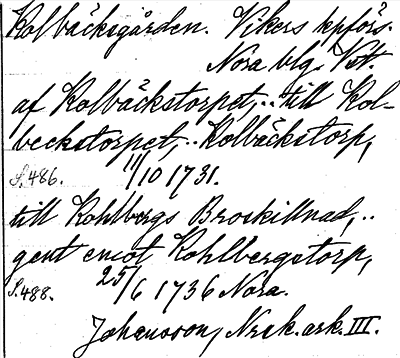 Kolbäcksgården. Vikers kpförs.
Nora blg. Vst.
af Kolbäckstorpet,.. till Kol-
beckstorpet,.. Kolbäckstorp,
S.486. 11/10 1731.
till Kohlbergs Broskillnad,..
gent emot Kohlbergstorp,
S.488. 25/6 1736 Nora.
Johansson, Nrak. ark. III.